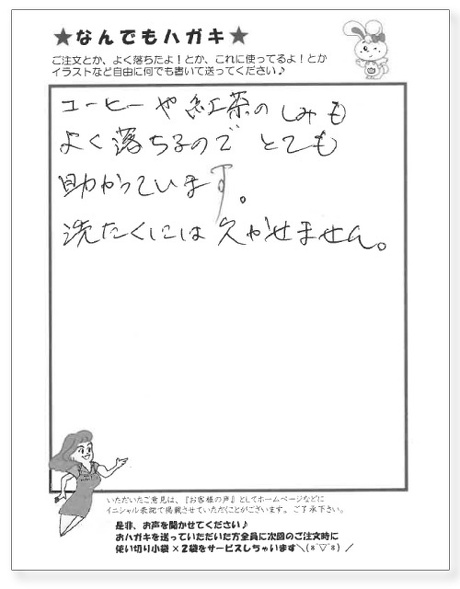 ★なんでもハガキ★
ご注文とか、よく落ちたよ！とか、これに使ってるよ！とか
イラストなど自由に何でも書いて送ってください♪
コーヒーや紅茶のしみも
よく落ちるので とても
助かっています。
洗たくには欠かせません。
いただいたご意見は、『お客様の声』としてホームページなどに
イニシャル表記で掲載させていただくことがございます。ご了承下さい。
是非、お声を聞かせてください♪
おハガキを送っていただいた方全員に次回のご注文時に
使い切り小袋×2袋をサービスしちゃいます＼(*´▽`*)／